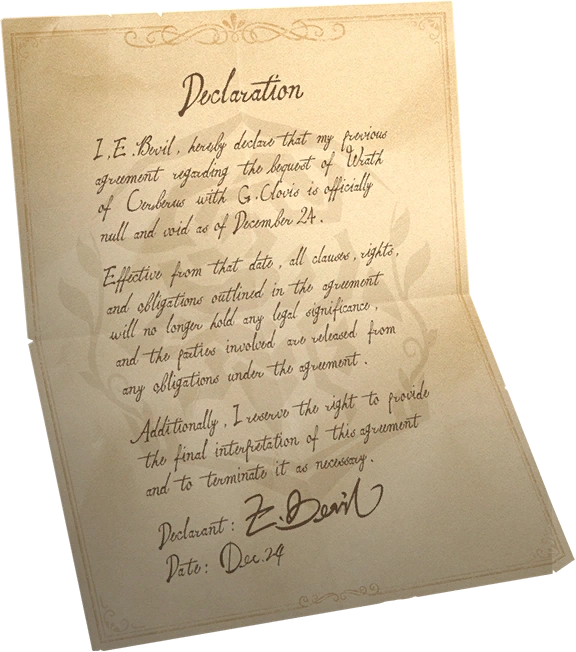 Declaration
I, E. Bevil, hereby declare that my previous
agreement regarding the bequest of Wrath
of Cerberus with G. Clovis is officially
null and void as of December 24.
Effective from that date, all clauses, rights,
and obligations outlined in the agreement
will no longer hold any legal significance,
and the parties involved are released from
any obligations under the agreement.
Additionally, I reserve the right to provide
the final interpretation of this agreement
and to terminate it as necessary.
Declarant: E. Bevil
Date: Dec. 24